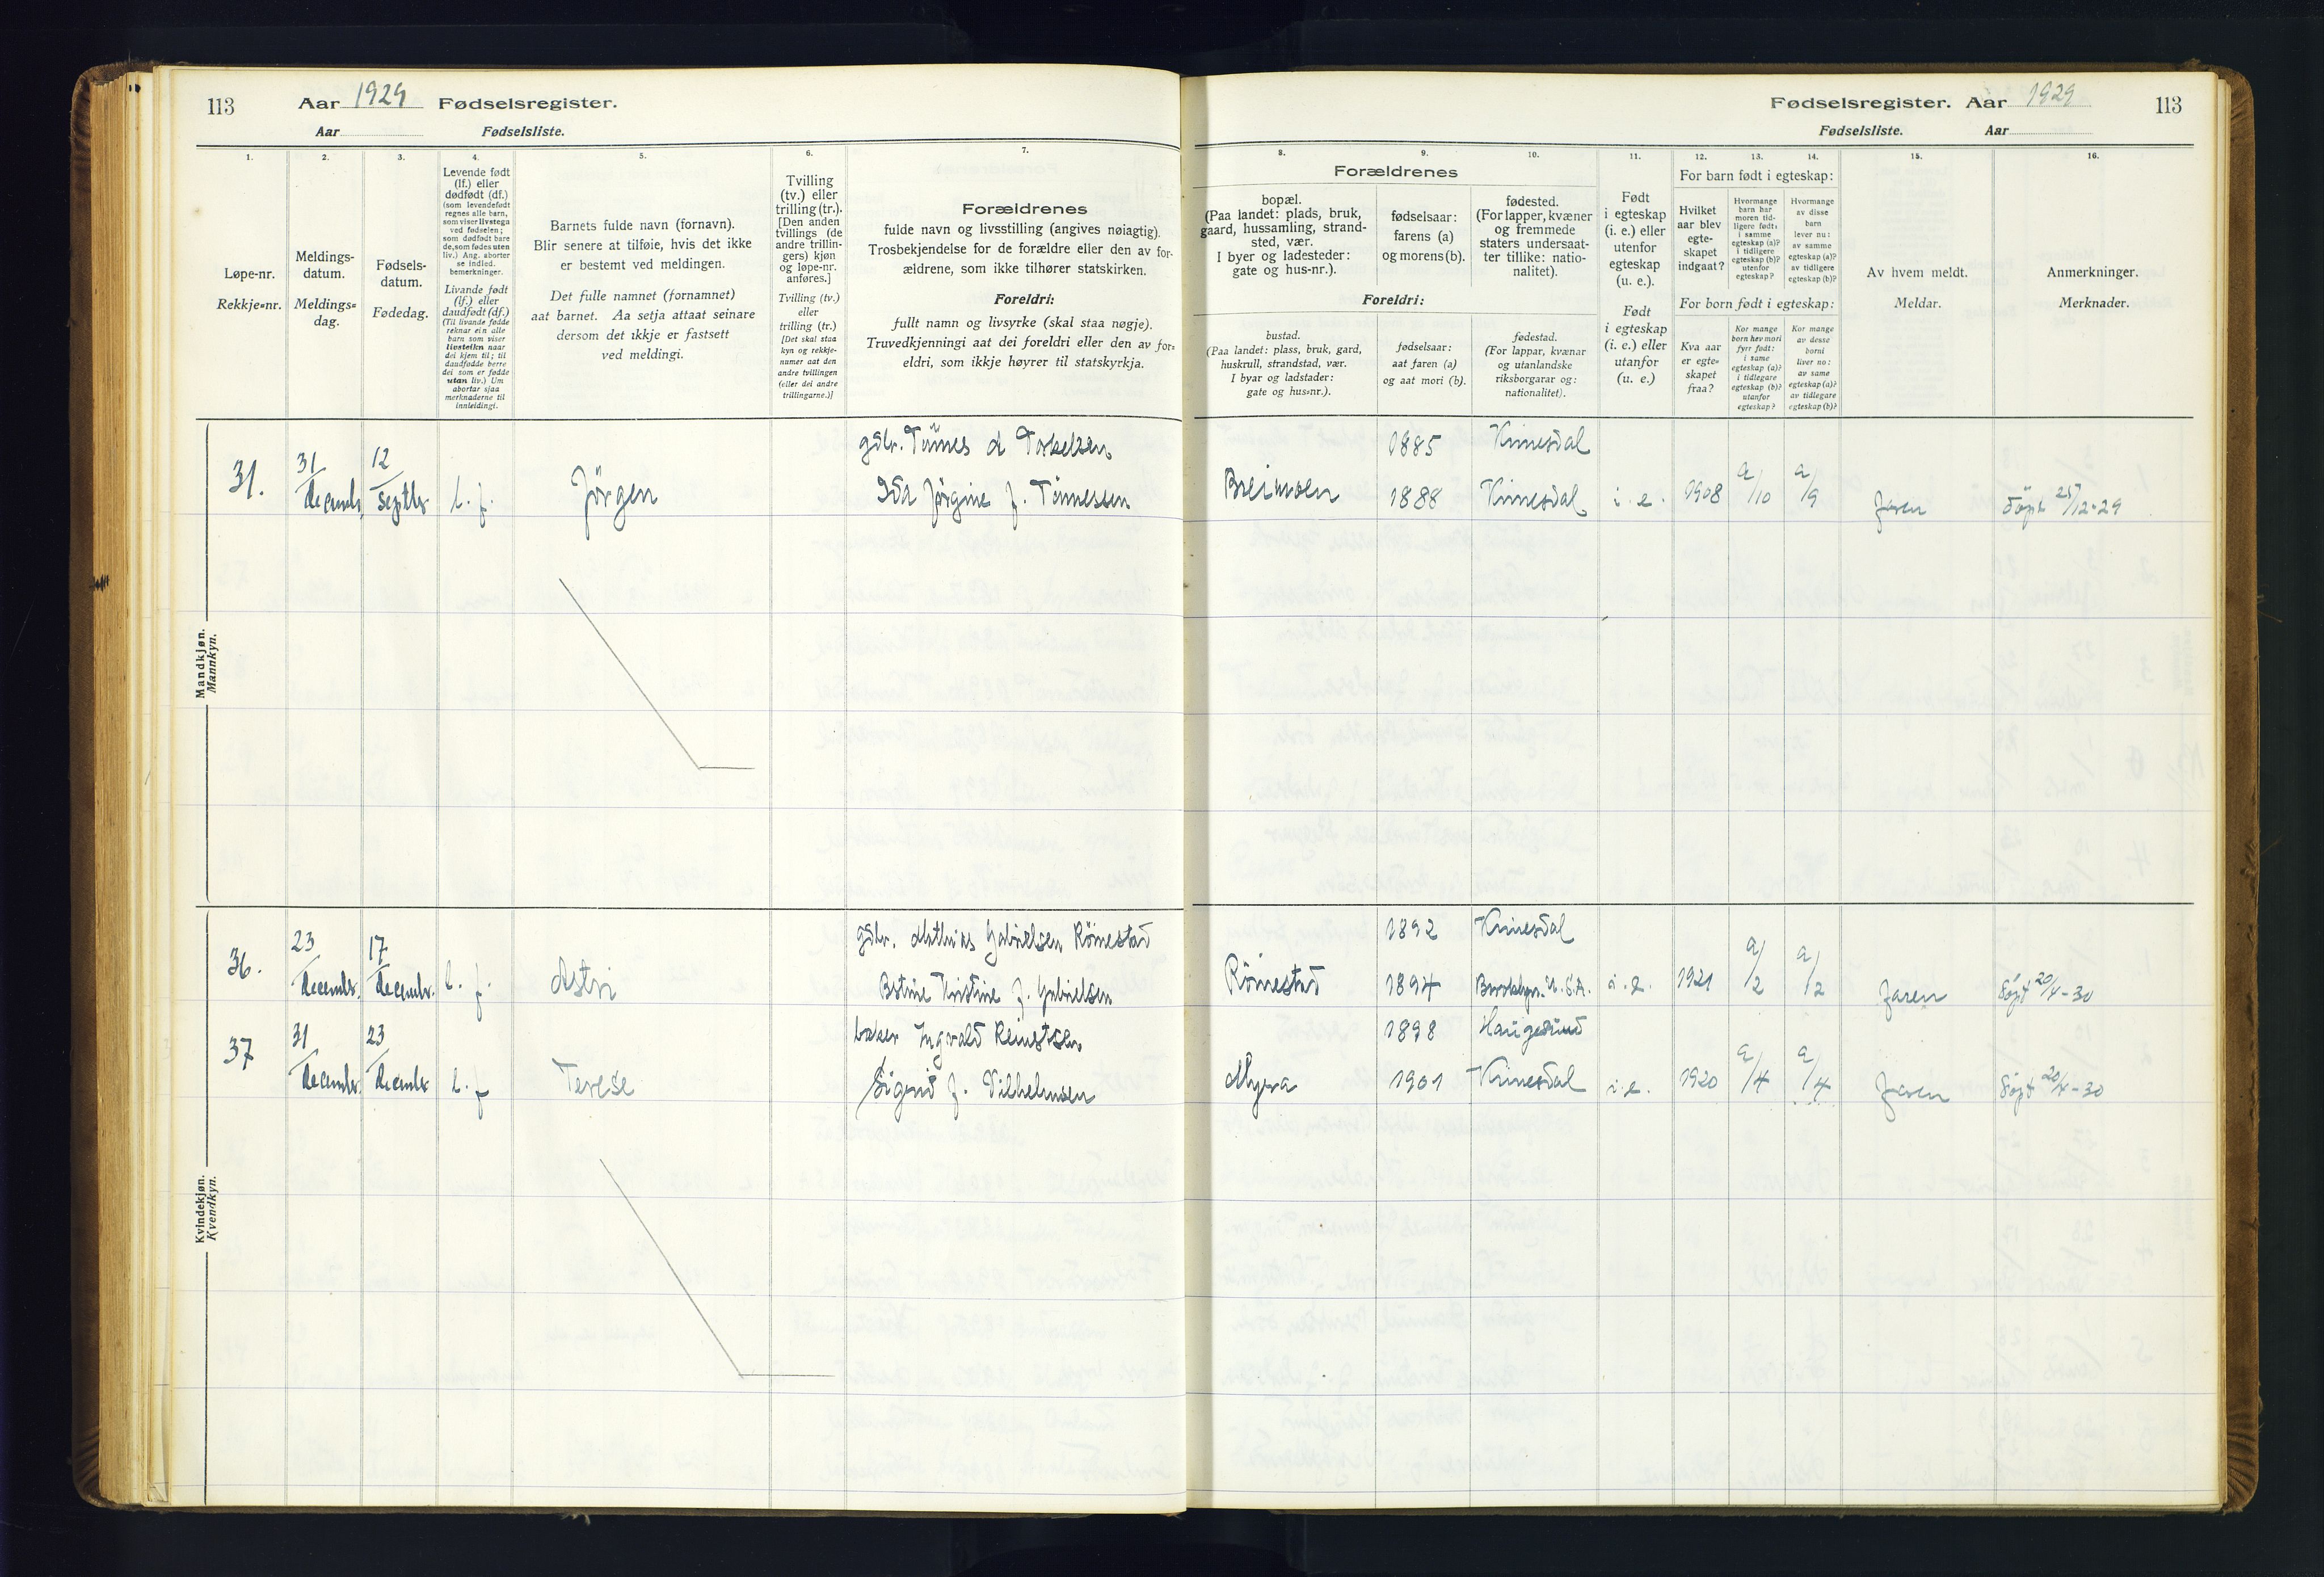 113 Aar 1929 Fødselsregister.
Aar Fødselsliste.
Fødselsregister. Aar 1929 113
Fødselsliste. Aar
1. 2. 3. 4. 5. 6. 7.
Løpe-nr.
Rekkje-nr.
Meldings-
datum.
Meldings-
dag.
Fødsels-
datum.
Fødedag.
Levende født
(lf.) eller
dødfødt (df.)
(som levendefødt
regnes alle barn,
som viser livstegn
ved fødselen;
som dødfødt bare
de, som fødes uten
liv.) Ang. aborter
se indled.
bemerkninger.
Livande født
(lf.) eller
daudfødt (df.)
(Til livande fødde
reknar ein alle
barn som viser
livsteikn naar
dei kjem til; til
daudfødde berre
dei som er fødde
utan liv.) Um
abortar sjaa
merknaderne til
innleidingi.
Barnets fulde navn (fornavn).
Blir senere at tilføie, hvis det ikke
er bestemt ved meldingen.
Det fulle namnet (fornamnet)
aat barnet. Aa setja attaat seinare
dersom det ikkje er fastsett
ved meldingi.
Tvilling
(tv.) eller
trilling (tr.).
[Den anden
tvillings (de
andre trillin-
gers) kjøn
og løpe-nr.
anføres.]
Tvilling (tv.)
eller
trilling (tr.)
[Det skal staa
kyn og rekkje-
numer aat den
andre tvillingen
(eller dei andre
trillingarne.)]
Forældrenes
fulde navn og livsstilling (angives nøiagtig).
Trosbekjendelse for de forældre eller den av for-
ældrene, som ikke tilhører statskirken.
Foreldri:
fullt namn og livsyrke (skal staa nøgje).
Truvedkjenningi aat dei foreldri eller den av for-
eldri, som ikkje høyrer til statskyrkja.
8. 9. 10. 11. 12. 13. 14. 15. 16.
Forældrenes
bopæl.
(Paa landet: plads, bruk,
gaard, hussamling, strand-
sted, vær.
I byer og ladesteder:
gate og hus-nr.).
fødselsaar:
farens (a)
og morens (b).
fødested.
(For lapper, kvæner
og fremmede
staters undersaat-
ter tillike: natio-
nalitet).
Foreldri:
bustad.
(Paa landet: plass, bruk, gard,
huskrull, strandstad, vær.
I byar og ladstader:
gate og hus-nr.).
fødselsaar:
aat faren (a)
og aat mori (b).
fødestad.
(For lappar, kvænar
og utanlandske
riksborgarar og:
nationalitet).
Født
i egteskap
(i. e.) eller
utenfor
egteskap
(u. e.).
Født
i egteskap
(i. e.) eller
utanfor
(u. e.)
For barn født i egteskap:
Hvilket
aar blev
egte-
skapet
indgaat?
Hvormange
barn har
moren tid-
ligere født:
i samme
egteskap (a)?
i tidligere
egteskap (b)?
utenfor
egteskap?
Hvormange
av disse
barn
lever nu:
av samme
egteskap (a)?
av tidligere
egteskap (b)?
For born født i egteskap:
Kva aar
er egte-
skapet
fraa?
Kor mange
born hev mori
fyrr født:
i same
egteskap (a)?
i tidlegare
egteskap (b)?
utanfor
egteskap?
Kor mange
av desse
borni
liver no:
av same
egteskap (a)?
av tidlegare
egteskap (b)?
Av hvem meldt.
Meldar.
Anmerkninger.
Merknader.
Mandkjøn.
Mannkyn.
gdbr. Tønnes A Torkelsen 1885 Kvinesdal
31. 31/decembr. 12/septbr l. f. Jørgen Ida Jørgine f. Tønnessen Breimoen 1888 Kvinesdal i. e. 1908 a/10 a/9 faren Døpt 25/12-29
Kvindekjøn.
Kvendkyn.
gdbr. Mathias Gabrielsen Rømestad 1892 Kvinesdal
36. 23/decembr. 17/decembr. l. f. Astri Kristine f. Gabrielsen Rømestad 1894 U.S.A. i. e. 1921 a/2 a/2 faren Døpt 20/4-30
baker Ingvald Reinertsen 1898 Haugesund
37 31/decembr. 23/decembr l. f Terese Sigrid f. Vilhelmsen Myra 1901 Kvinesdal i. e. 1920 a/4 a/4 faren Døpt 20/4-30